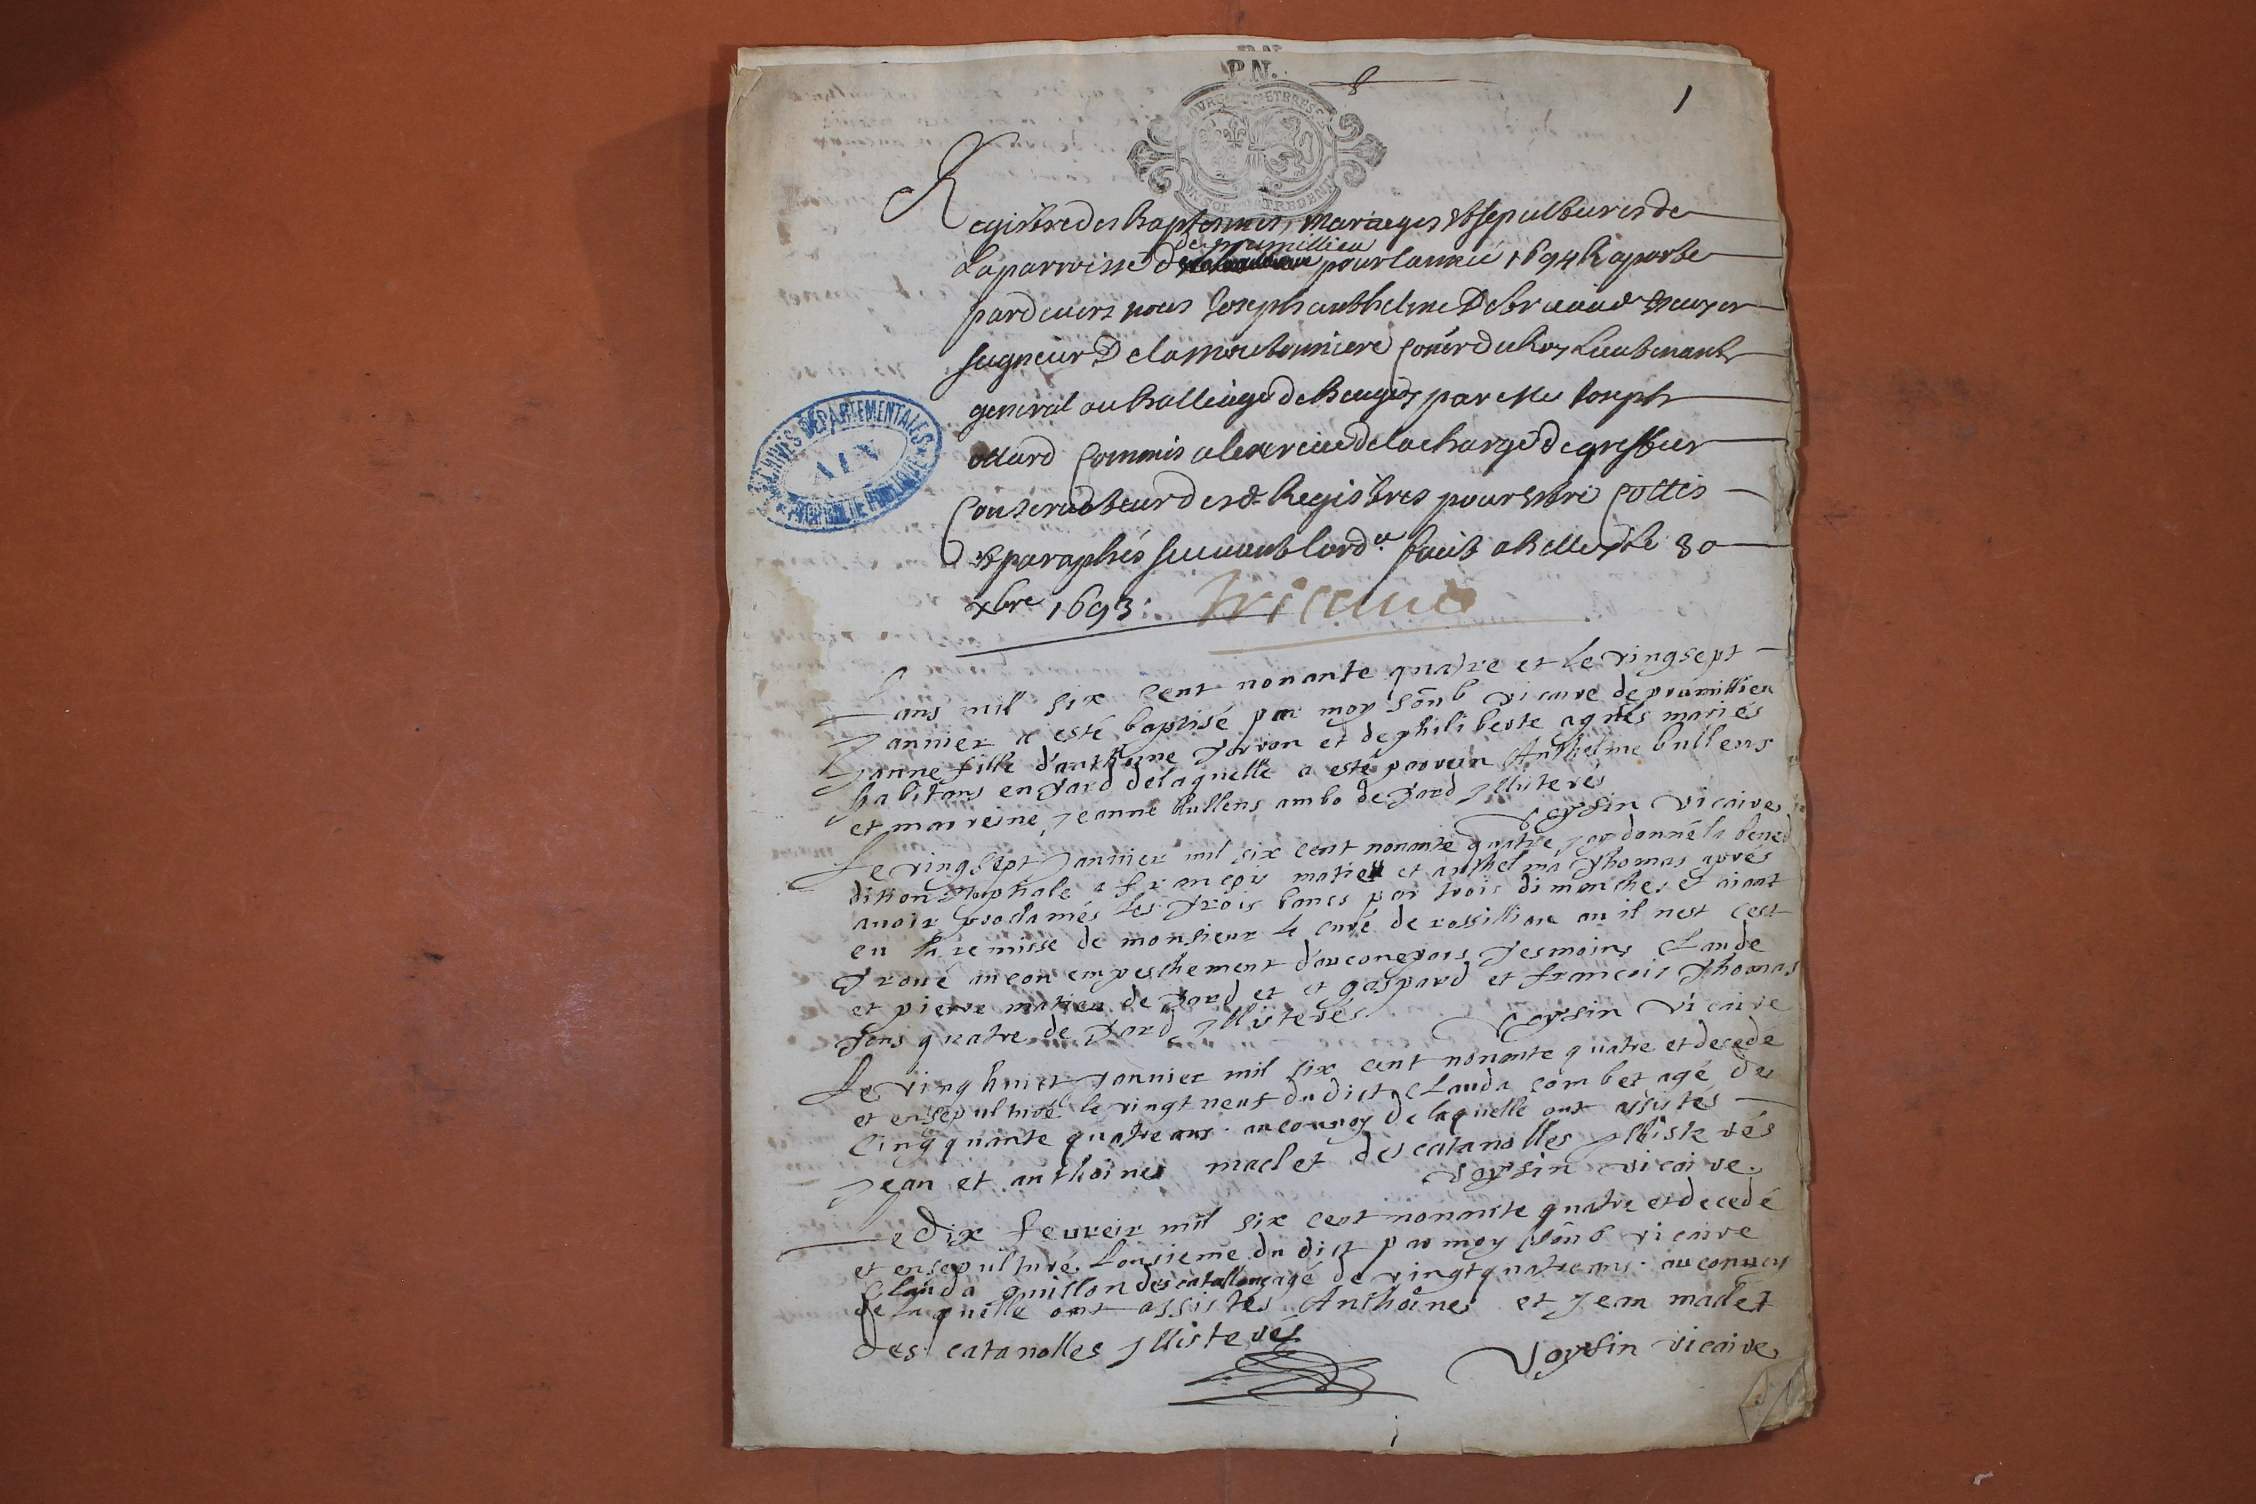 P.N.
1
Registre des Baptesmes, Mariages et sepultures de
La parroisse de prumillieu pour l'année 1694 Raporte
pardevers nous Joseph anthelme De bricaud Escuyer
seigneur De la moutonniere Coner du Roy Lieutenant
general au Balliage de Beugey par Me Joseph
commis a lexercice de la charge de greffier
Conservateur desd. Registres pour estre Cottés
et paraphés suivant lord.ce faict a Belley le 30
xbre 1693.
Lans mil six cent nonante quatre et le vingsept
Janvier a esté baptisé par moy soub vicaire de prumillieu
Janne fille d'anthoine Jarvon et de philiberte agnés mariés
habitans en Jard delaquelle a esté parrein Anthelme bullens
et marreine Jeanne bullens ambo de Jard Illisterés
Voysin vicaire
Le vingsept Janvier mil six cent nonante quatre Jay donné la bened
dition Nuptiale a françois matieu et anthelma Thomas aprés
avoir proclamés les Trois bancs par trois dimanches et aiant
eu la remisse de monsieur le curé de rossillion ou il nest cest
Troué aucon empeschement d'auconepars Jesmoins Claude
et pierre matieu de Jard et et gaspard et françois Thomas
Tous quatre de Jard Illisterés
Voysin vicaire
Le vinghuict Janvier mil six cent nonante quatre et decede
et ensepulturé le vingtneuf du dict Clauda combet agé de
Cinqquante quatre ans. au convoy de laquelle ont assistés
Jean et anthoine maclet des catanolles Illisterés
Voysin vicaire.
Le Dix feureir mil six cent nonante quatre et decedé
et ensepulturé Lonsieme du dict par moy soub vicaire
Clauda guillon des catallonz agé de vingtquatre ans. au convoy
de laquelle ont assistes Anthoine et Jean maclet
des catanolles Illisterés
Voysin vicaire
ARCHIVES DÉPARTEMENTALES
AIN
PROPRIÉTÉ PUBLIQUE